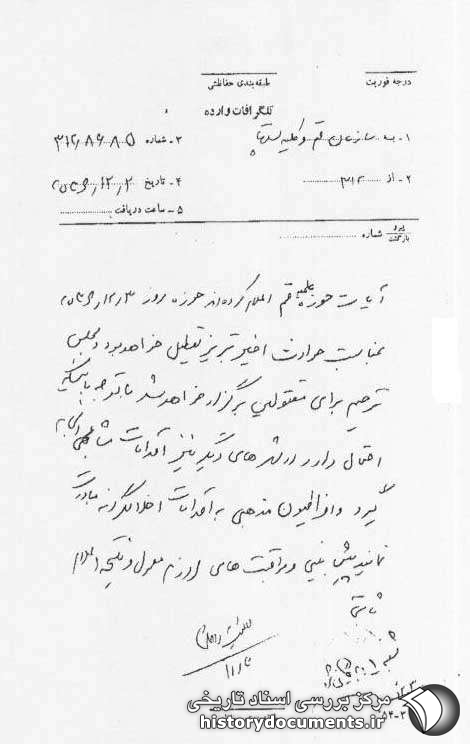 درجه فوریت
طبقه‌بندی حفاظتی
تلگرافات وارده
۱- به سازمان قم و کلیه استانها
۳- شماره ۳۱۲/۸۶۸۵
۲- از ۳۱۲
۴- تاریخ
۵- ساعت دریافت
پیرو
بازگشت
شماره
آیات حوزه علمیه قم اعلام کرده‌اند حوزه روز
بمناسبت حوادث اخیر تبریز تعطیل خواهد بود و مجلس
ترحیم برای مقتولین برگزار خواهد شد با توجه باینکه
احتمال دارد در شهرهای دیگر نیز اقدامات مشابهی انجام
گیرد و افراطیون مذهبی به اقدامات اخلالگرانه مبادرت
نمایند پیش بینی و مراقبت های لازم معمول و نتیجه اعلام
ثابتی
مرکز بررسی اسناد تاریخی
historydocuments.ir